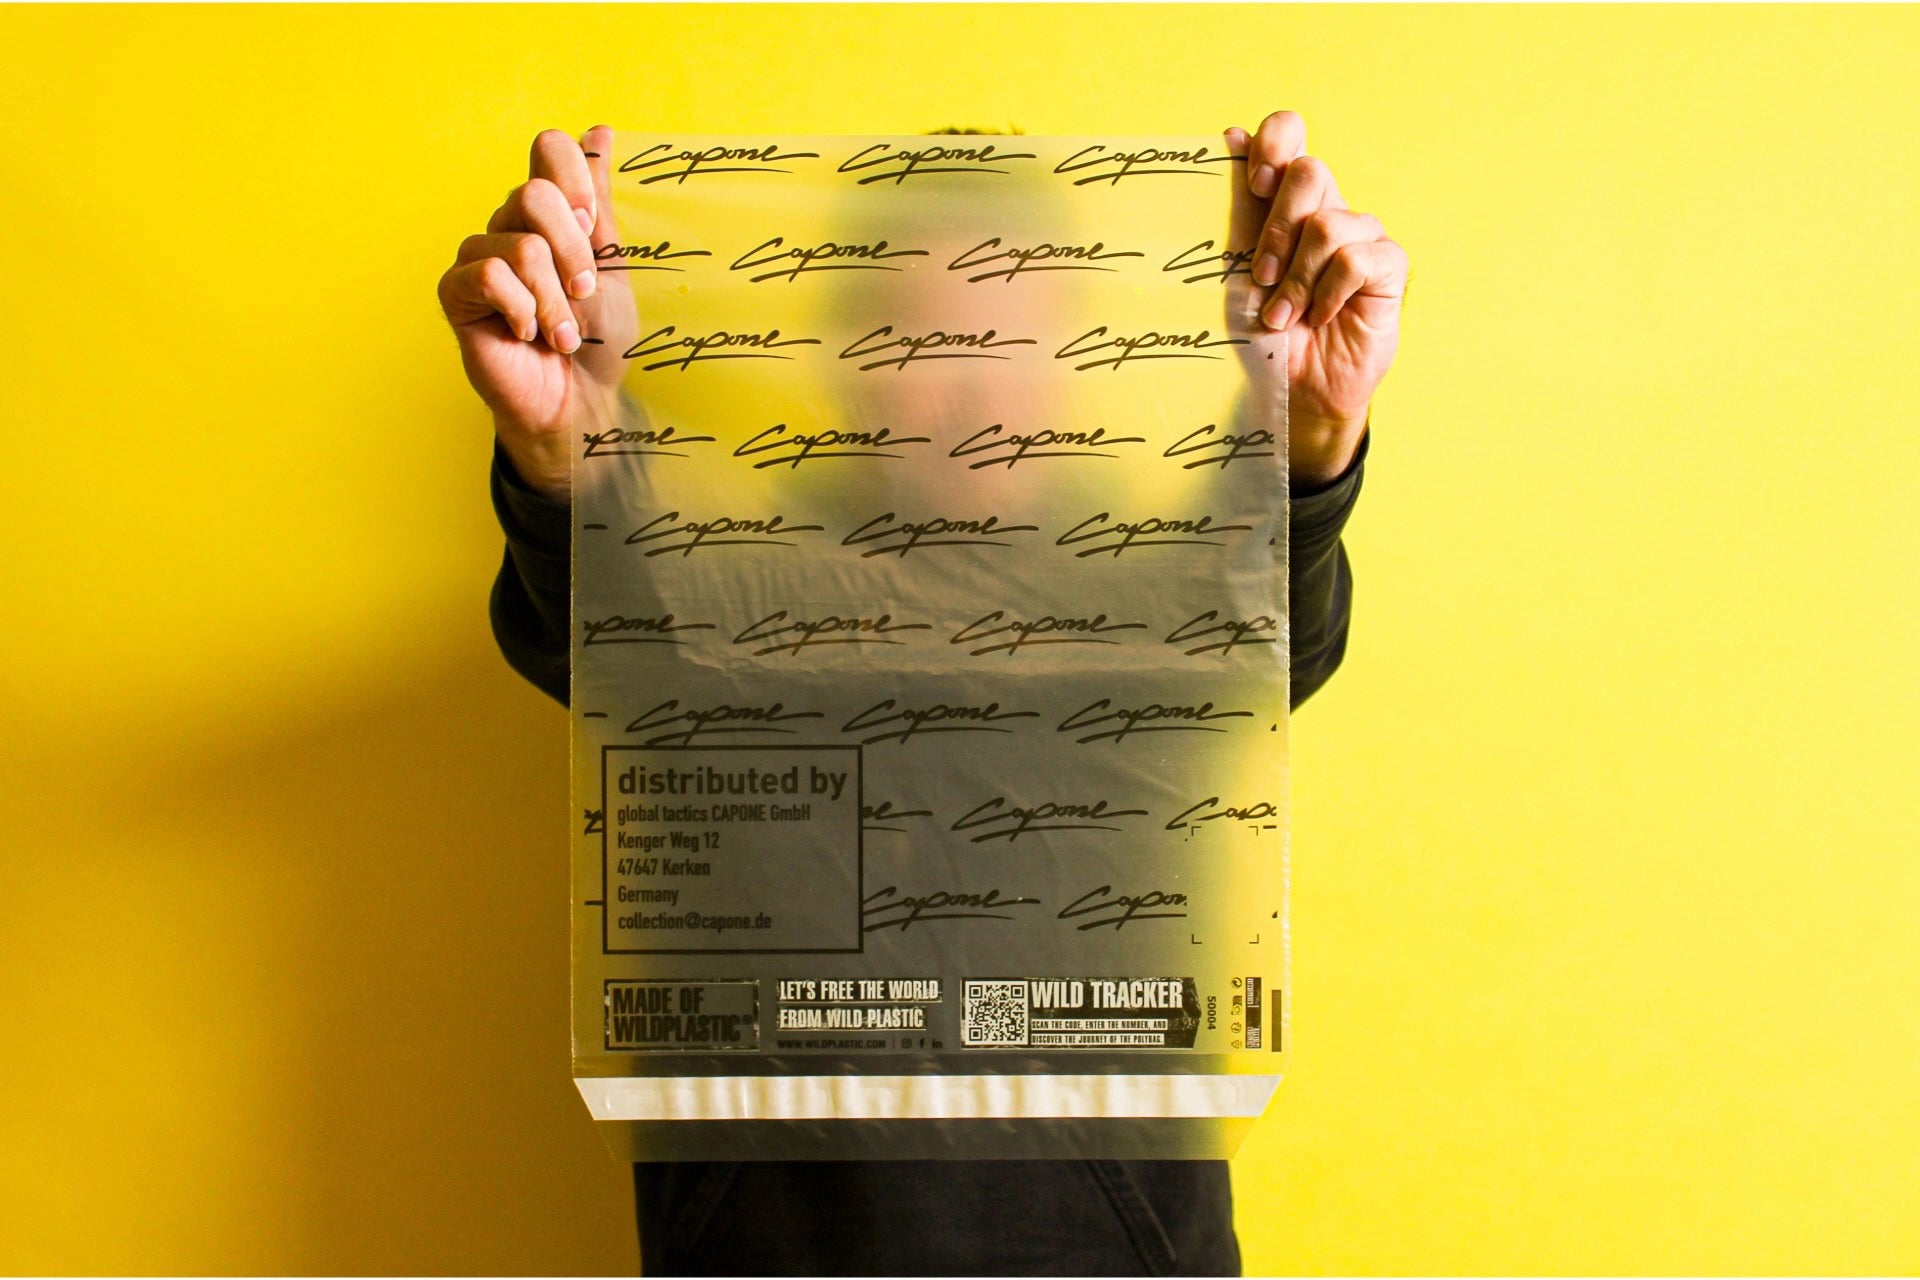 Capone Capone Capone
pone Capone Capone Cap
Capone Capone Capone
apone Capone Capone Capo
Capone Capone Capone
apone Capone Capone Capo
Capone Capone Capone
distributed by
global tactics CAPONE GmbH
Kenger Weg 12
47647 Kerken
Germany
collection@capone.de
ne Capone Capo
Capone Capon
MADE OF
WILDPLASTIC®
LET'S FREE THE WORLD
FROM WILD PLASTIC
WWW.WILDPLASTIC.COM
WILD TRACKER
SCAN THE CODE, ENTER THE NUMBER, AND
DISCOVER THE JOURNEY OF THE POLYBAG.
50004